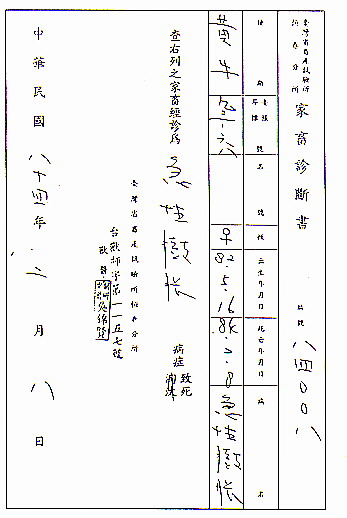 臺灣省畜產試驗所恆春分所
家畜診斷書
編號 八四〇〇八
種類
畜號
名號
性
出生年月日
死亡年月日
病名
黃牛
♀
82.5.16
84.2.8
急性鼓脹
查右列之家畜經診為
急性鼓脹
病症
致死
臺灣省畜產試驗所恆春分所
台獸師字第一一五七號
獸醫
中華民國 八十四年 二月 八日